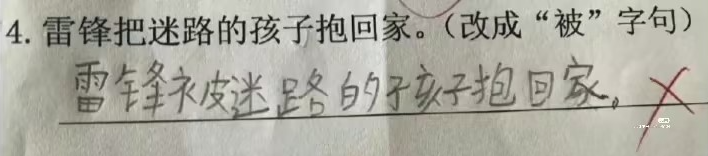 4. 雷锋把迷路的孩子抱回家。(改成“被”字句)
雷锋被迷路的孩子抱回家。